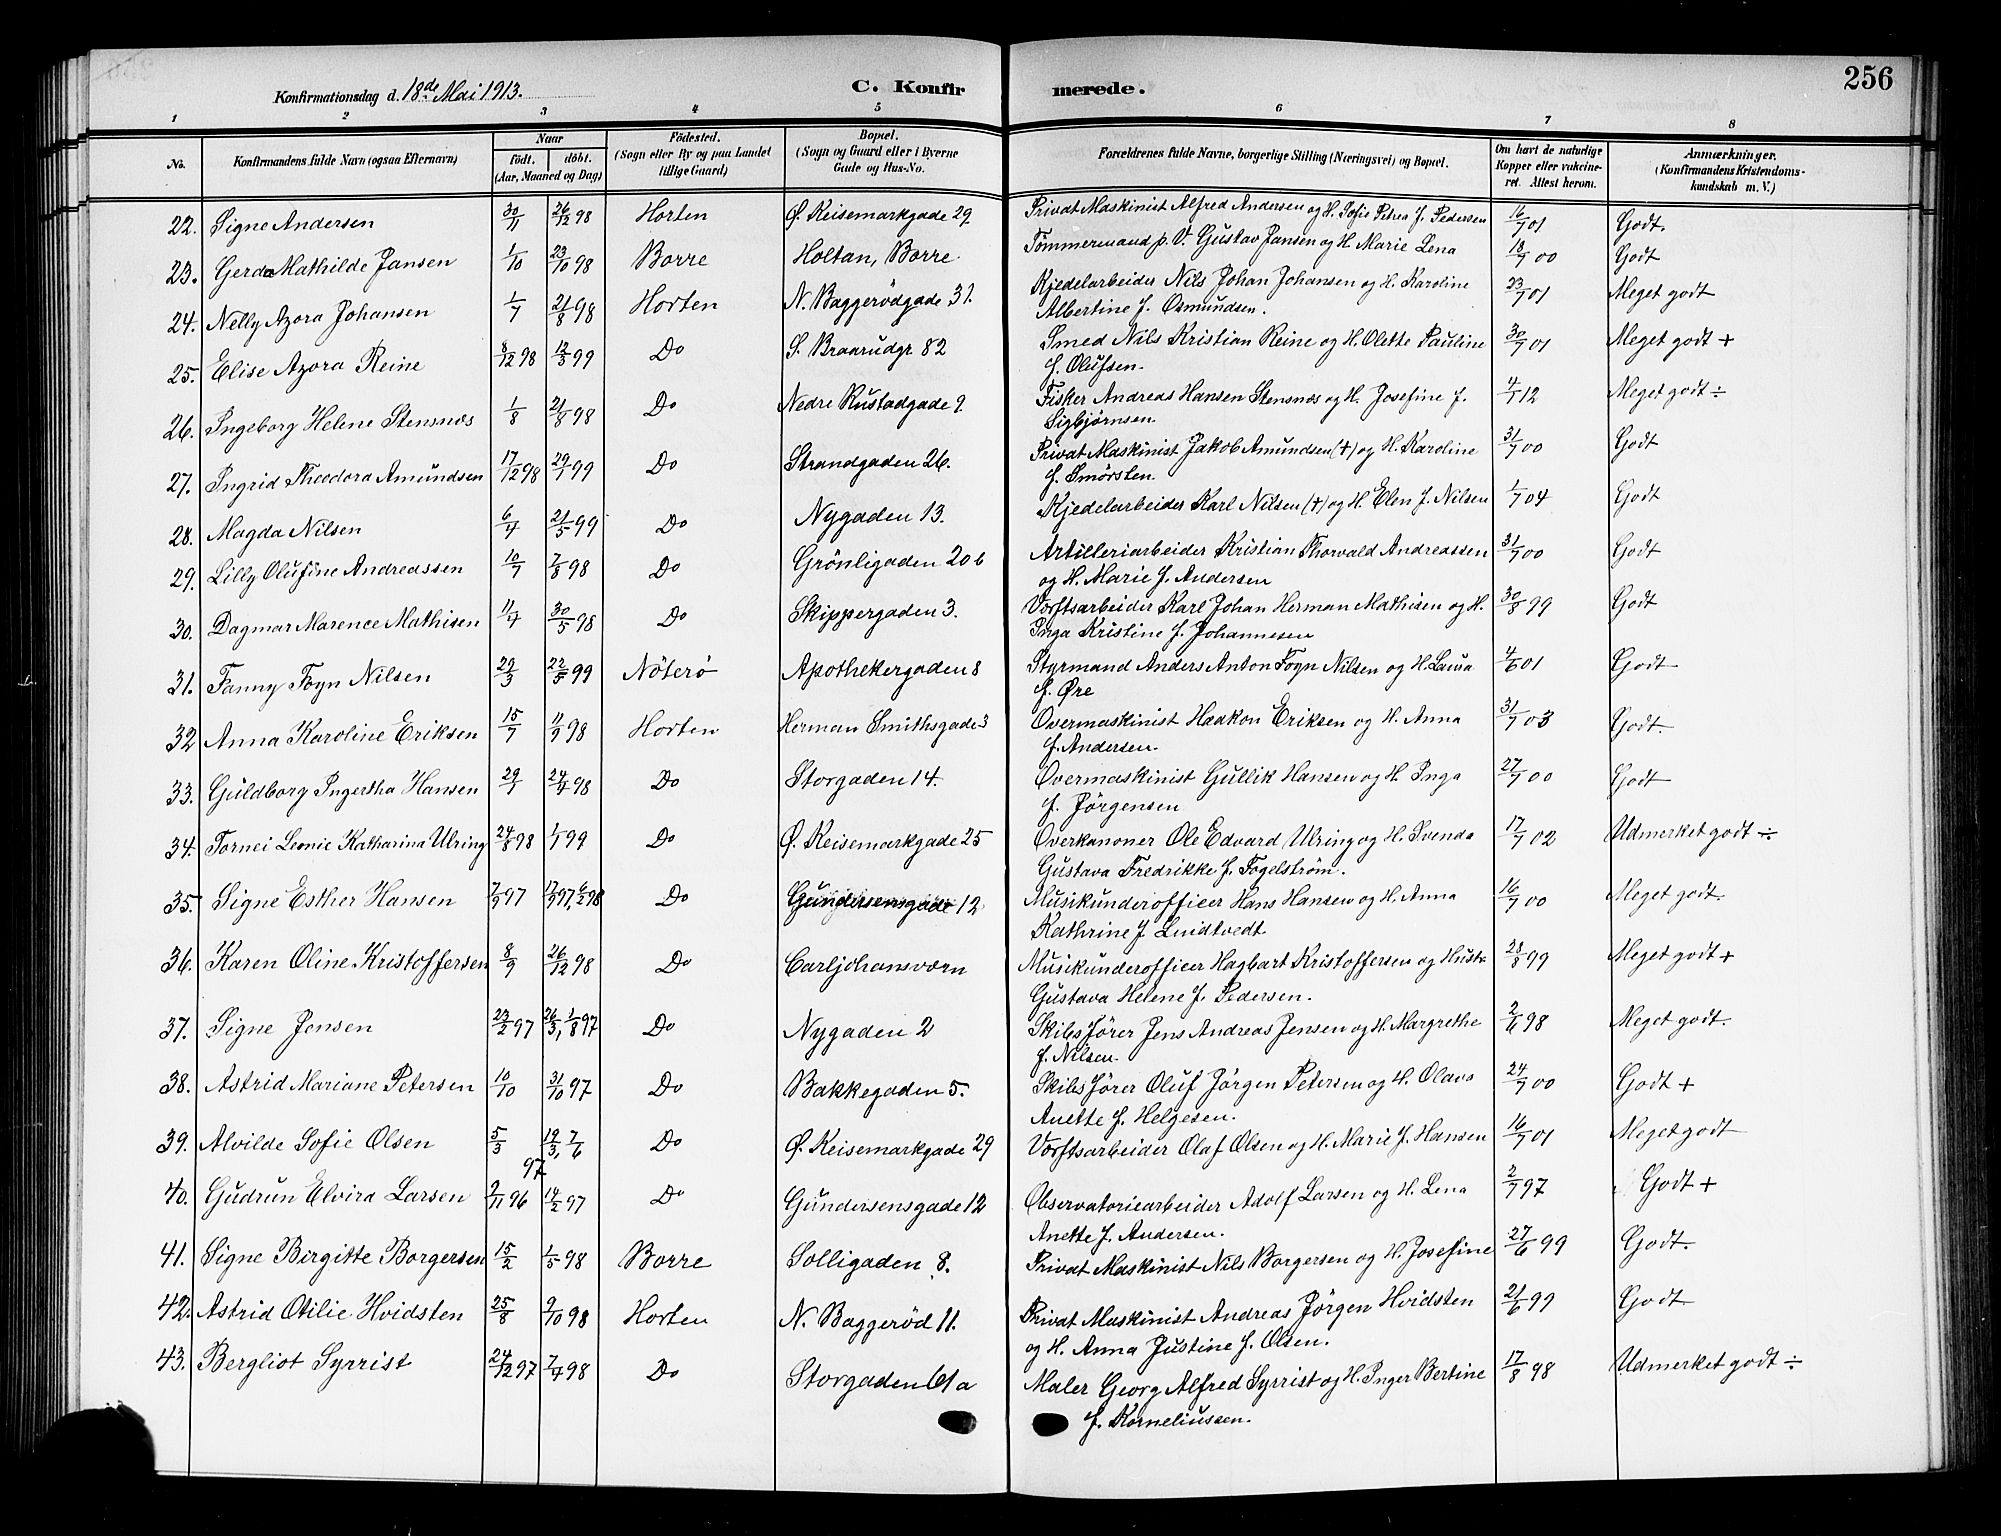 256
Konfirmationsdag d. 18de Mai 1913. C. Konfirmerede.
1 2 3 4 5 6 7 8
No. Konfirmandens fulde Navn (ogsaa Efternavn) Naar født. døbt. (Aar, Maaned og Dag) Fødested. (Sogn eller By og paa Landet tillige Gaard) Bopæl. (Sogn og Gaard eller i Byerne Gade og Hus-No. Forældrenes fulde Navne, borgerlige Stilling (Næringsvei) og Bopæl. Om havt de naturlige Kopper eller vakcineret. Attest herom. Anmærkninger. (Konfirmandens Kristendomskundskab m. V.)
22. Signe Andersen 30/11 26/12 98 Horten Ø. Keisemarkgade 29 Privat Maskinist Alfred Andersen og H. Sofie Petrea f. Pedersen 16/7 01 Godt.
23. Gerda Mathilde Jansen 1/10 23/10 98 Borre Holtan, Borre. Tømmermand p. V. Gustav Jansen og H. Marie Lena 18/7 00 Godt
24. Nelly Azora Johansen 1/7 21/8 98 Horten N. Baggerødgade 31. Kjedelarbeider Nils Johan Johansen og H. Karoline
Albertine f. Osmundsen. 23/7 01 Meget godt
25. Elise Azora Reine 8/12 98 12/3 99 Do S. Braarudgr 82 Smed Nils Kristian Reine og H. Olette Pauline
f. Olufsen. 30/7 01 Meget godt +
26. Ingeborg Helene Stensnæs 1/8 21/8 98 Do Nedre Rustadgade 9. Fisker Andreas Hansen Stensnæs og H. Josefine f.
Sigbjørnsen. 4/1 12 Meget godt ÷
27. Ingrid Theodora Amundsen 17/12 98 29/1 99 Do Strandgaden 26. Privat Maskinist Jakob Amundsen (†) og H. Karoline
f. Smørsten. 31/7 00 Godt
28. Magda Nilsen 6/4 21/5 99 Do Nygaden 13. Kjedelarbeider Karl Nilsen (†) og H. Elen f. Nilsen 1/7 04 Godt
29. Lilly Olufine Andreassen 10/7 7/8 98 Do Grønligaden 20 b Artilleriarbeider Kristian Thorvald Andreassen
og H. Marie f. Andersen 31/7 00 Godt
30. Dagmar Marence Mathisen 11/4 30/5 98 Do Skippergaden 3. Værftsarbeider Karl Johan Herman Mathisen og H.
Inga Kristine f. Johannesen 30/8 99 Godt
31. Fanny Foyn Nilsen 29/3 22/5 99 Nøterø Apothekergaden 8 Styrmand Anders Anton Foyn Nilsen og H. Laura
f. Øre 4/6 01 Godt
32 Anna Karoline Eriksen 15/7 11/9 98 Horten Herman Smithsgade 3 Overmaskinist Haakon Eriksen og H. Anna
f. Andersen. 31/7 03 Godt.
33. Guldborg Ingertha Hansen 29/1 24/4 98 Do Storgaden 14. Overmaskinist Gullik Hansen og H. Inga
f. Jørgensen 27/7 00 Godt
34. Tornei Leonie Katharina Ulring 24/8 98 1/1 99 Do Ø. Keisemarkgade 25 Overkanoner Ole Edvard Ulring og H. Svenda
Gustava Fredrikke f. Fogelstrøm. 17/7 02 Udmerket godt ÷
35. Signe Esther Hansen 7/9 97 Do Gundersensgade 12 Musikunderofficer Hans Hansen og H. Anna
Kathrine f. Lundtvedt 16/7 00 Meget godt.
36. Karen Oline Kristoffersen 8/9 26/12 98 Do Carljohansværn Musikunderofficer Hagbart Kristoffersen og Hustr
Gustava Helene f. Pedersen. 28/8 99 Meget godt +
37. Signe Jensen 22/2 97 26/3, 1/8 97 Do Nygaden 2 Skibsfører Jens Andreas Jensen og H. Margrethe
f. Nilsen. 2/6 98 Meget godt.
38. Astrid Mariane Petersen 10/10 31/10 97 Do Bakkegaden 5. Skibsfører Oluf Jørgen Petersen og H. Olava
Anette f. Helgesen. 24/7 00 Godt +
39. Alvilde Sofie Olsen 5/3 19/3, 7/6 97 Do Ø. Keisemarkgade 29 Værftsarbeider Olaf Olsen og H. Marie f. Hansen 16/7 01 Meget godt
40. Gudrun Elvira Larsen 9/11 96 14/2 97 Do Gundersensgade 12 Observatoriearbeider Adolf Larsen og H. Lena
Anette f. Andersen. 2/7 97 Godt +
41. Signe Birgitte Borgersen 15/2 1/5 98 Borre Solligaden 8. Privat Maskinist Nils Borgersen og H. Josefine 27/6 99 Godt.
42. Astrid Otilie Hvidsten 25/8 9/10 98 Horten N. Baggerød 11. Privat Maskinist Andreas Jørgen Hvidsten
og H. Anna Justine f. Olsen. 21/6 99 Godt
43. Bergliot Syrrist 24/12 97 7/4 98 Do Storgaden 61 a Maler Georg Alfred Syrrist og H. Inger Bertine
f. Korneliussen. 17/8 98 Udmerket godt ÷